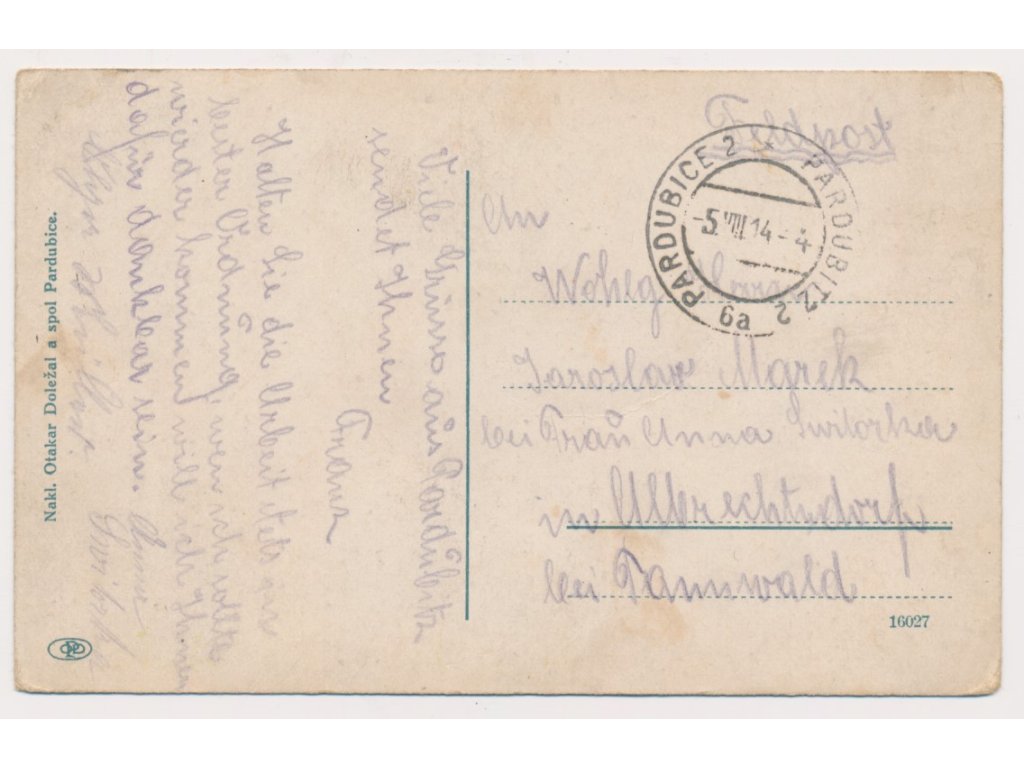 Feldpost
PARDUBICE 2 PARDUBITZ 2
-5.VIII 14-4
6a
An
Wohlg. Herrn
Jaroslav Marek
bei Fraŭ Anna
in Albrechtsdorf
bei Tannwald
16027
Viele Grüsse aŭs Pardŭbitz
sendet Ihnen
Franz
Halten Sie die Arbeit stets in
bester Ordnŭng, wen ich sollte
wieder kommen will ich Ihnen
dafür dankbar sein.
Anna
Nakl. Otakar Doležal a spol Pardubice.